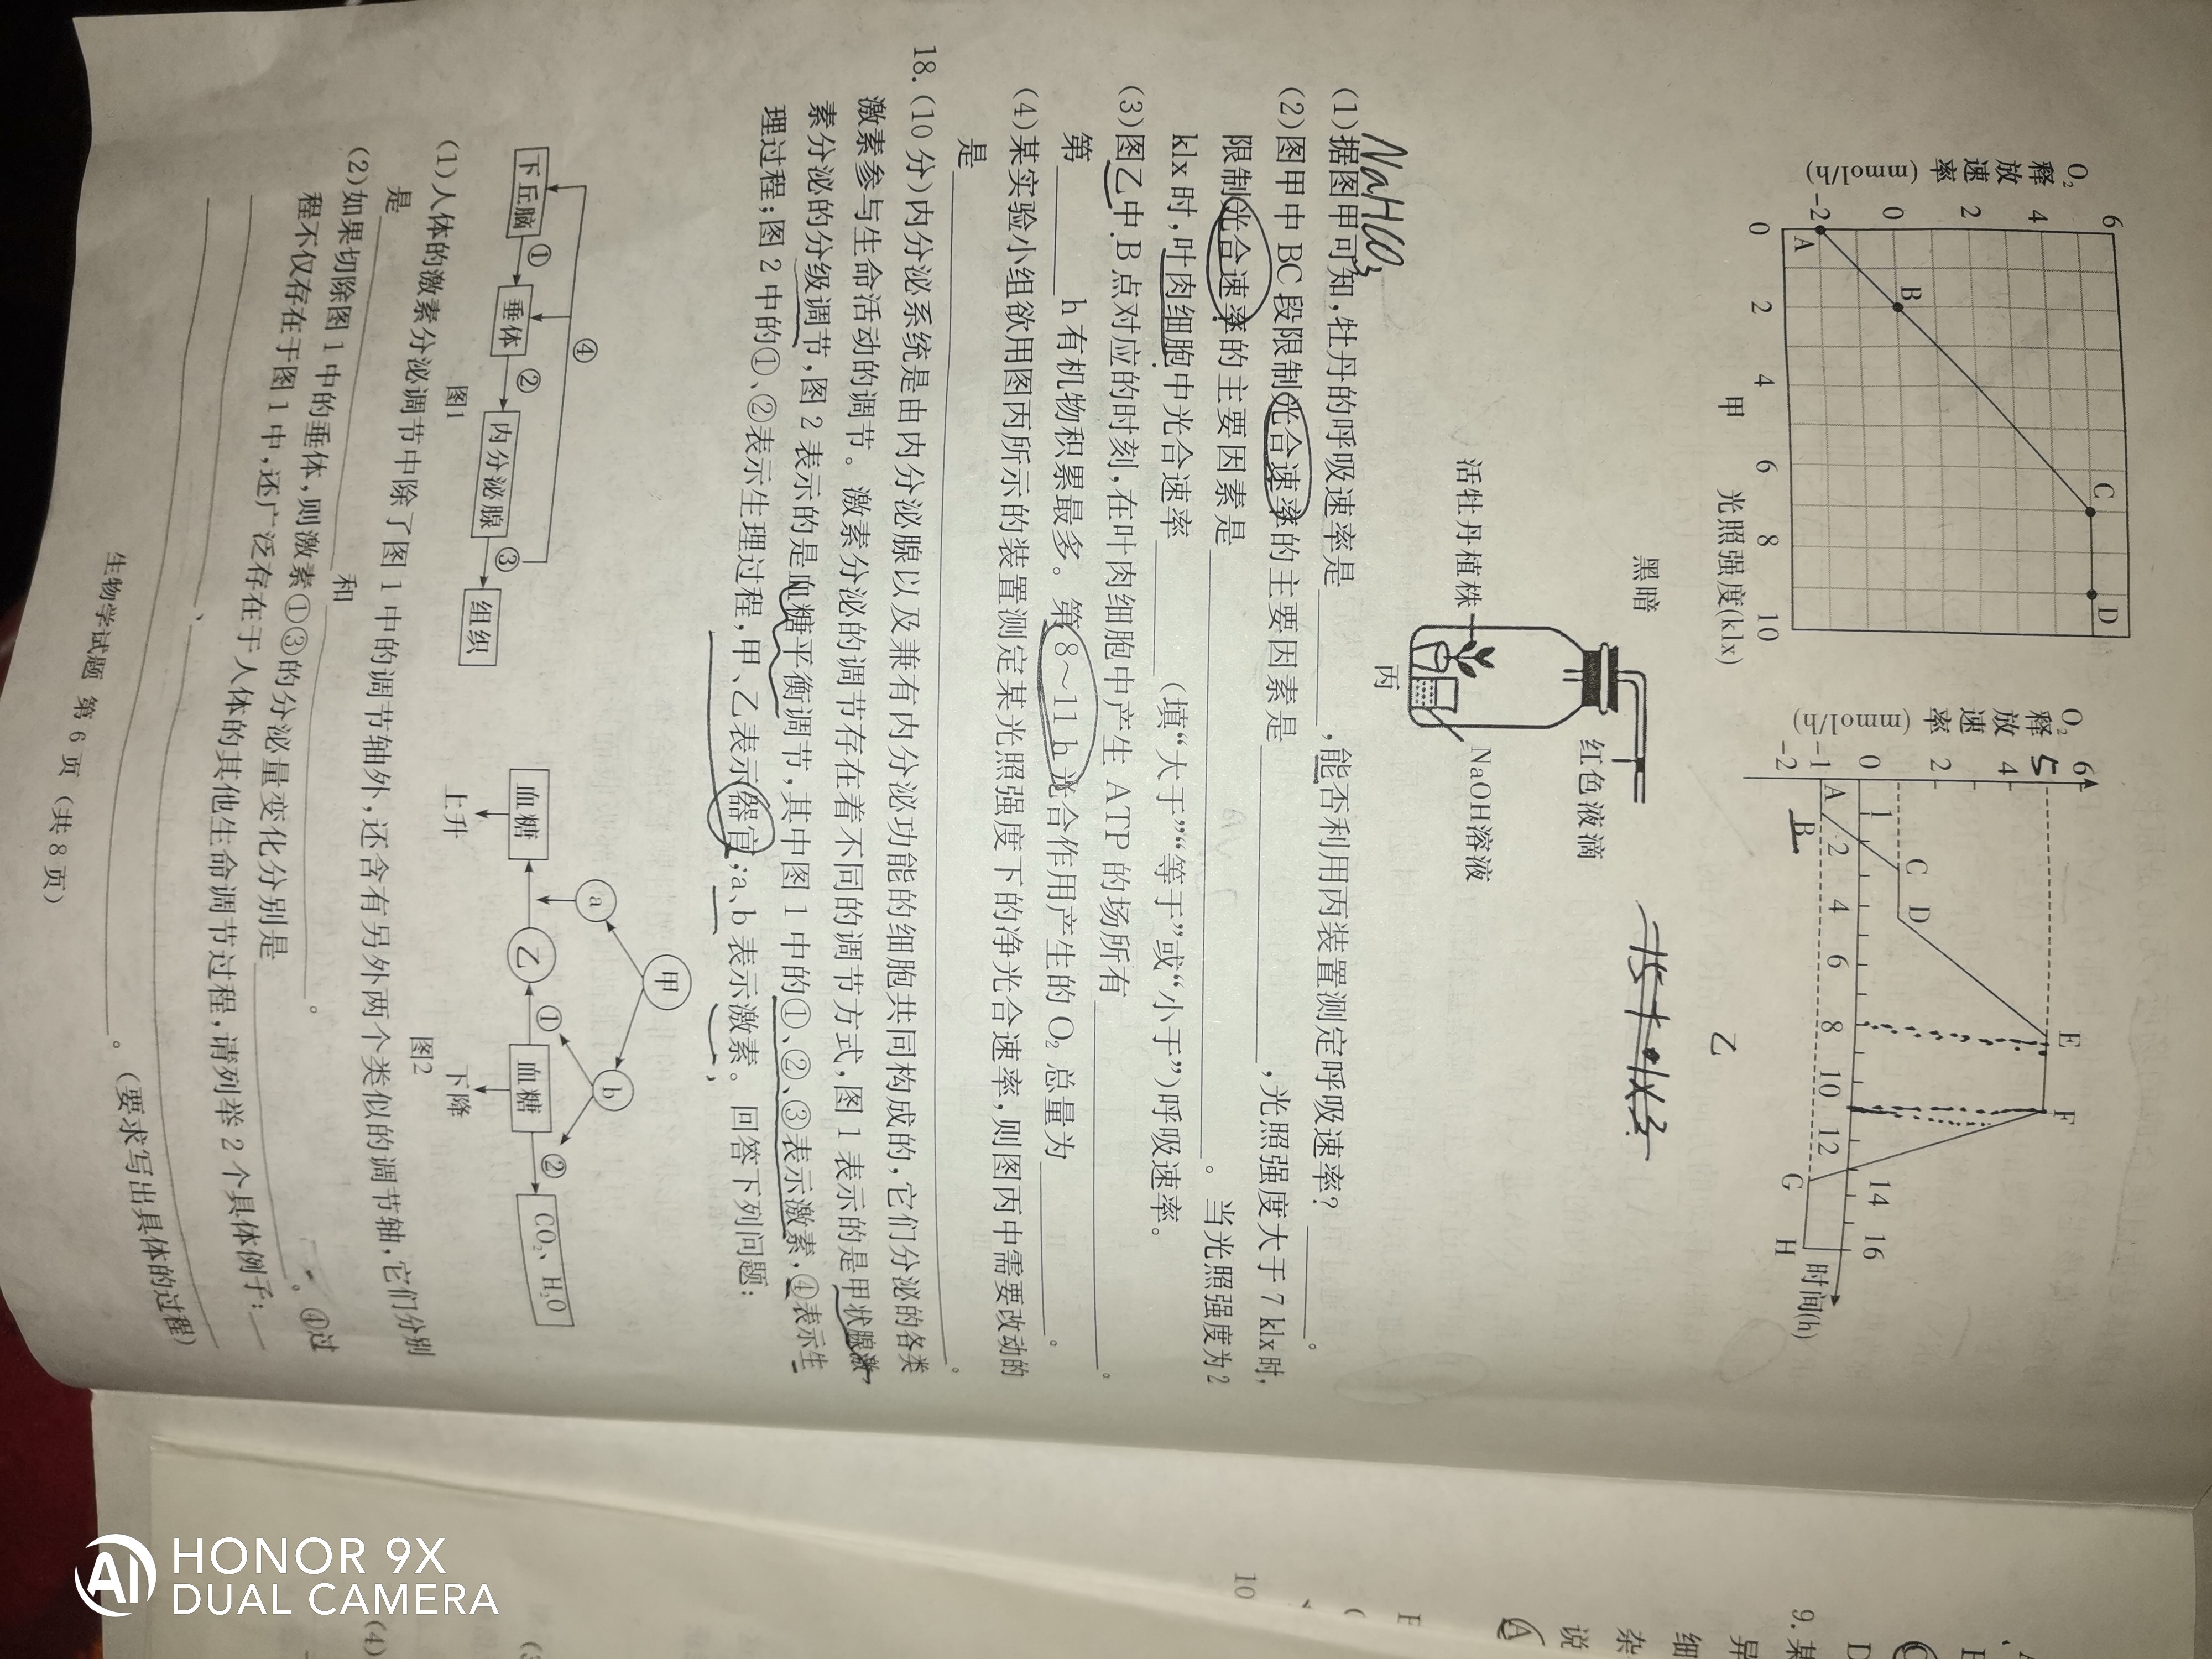 O₂释放速率(mmol/h)
6
4
2
0
-2
A
B
C
D
0 2 4 6 8 10
光照强度(klx)
甲
O₂释放速率(mmol/h)
6
5
4
2
0
-1
-2
A
B
C
D
E
F
G
H
1 2 4 6 8 10 12 14 16
时间(h)
乙
黑暗
活牡丹植株
红色液滴
NaOH溶液
丙
NaHCO₃
(1)据图甲可知,牡丹的呼吸速率是________,能否利用丙装置测定呼吸速率?________。
(2)图甲中BC段限制光合速率的主要因素是________,光照强度大于7 klx时,
限制光合速率的主要因素是________。当光照强度为2
klx时,叶肉细胞中光合速率________(填“大于”“等于”或“小于”)呼吸速率。
(3)图乙中B点对应的时刻,在叶肉细胞中产生ATP的场所有________。
第________h有机物积累最多。第8~11 h光合作用产生的O₂总量为________。
(4)某实验小组欲用图丙所示的装置测定某光照强度下的净光合速率,则图丙中需要改动的
是________。
18.(10分)内分泌系统是由内分泌腺以及兼有内分泌功能的细胞共同构成的,它们分泌的各类
激素参与生命活动的调节。激素分泌的调节存在着不同的调节方式,图1表示的是甲状腺激
素分泌的分级调节,图2表示的是血糖平衡调节,其中图1中的①、②、③表示激素,④表示生
理过程;图2中的①、②表示生理过程,甲、乙表示器官;a、b表示激素。回答下列问题:
④
下丘脑 ① 垂体 ② 内分泌腺 ③ 组织
图1
甲
a b
血糖 乙 ① 血糖 ② CO₂、H₂O
上升 下降
图2
(1)人体的激素分泌调节中除了图1中的调节轴外,还含有另外两个类似的调节轴,它们分别
是________和________。
(2)如果切除图1中的垂体,则激素①③的分泌量变化分别是________。④过
程不仅存在于图1中,还广泛存在于人体的其他生命调节过程,请列举2个具体例子:
________、________。(要求写出具体的过程)
生物学试题 第6页(共8页)
10
9.某
异
细
杂
说
A
(4)
HONOR 9X
DUAL CAMERA
AI